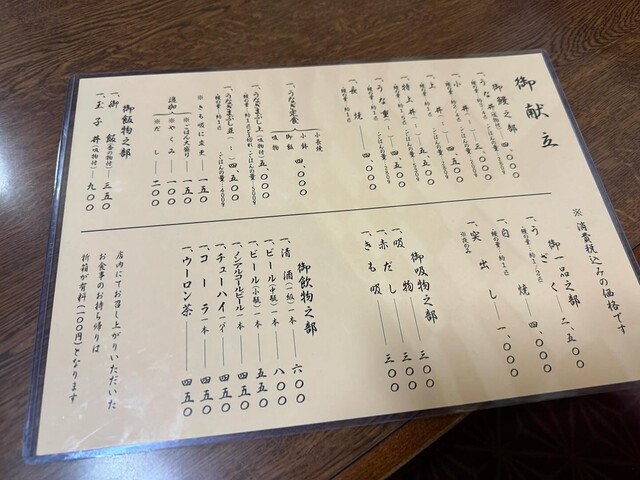 御献立
御鰻之部
一、うな丼(吸物付)──四、〇〇〇
一、小丼(〃)──三、〇〇〇
一、上丼(〃)──四、五〇〇
一、特上丼(〃)──五、五〇〇
一、うな重(〃)──四、五〇〇
一、長焼──四、〇〇〇
一、うなぎ定食
小長焼
小鉢
御飯
吸物
四、〇〇〇
一、うなぎまぶし上(吸物付)五、〇〇〇
一、うなぎまぶし並(〃)四、五〇〇
※きも吸に変更──一五〇
追加
※ごはん大盛り──一五〇
※やくみ──一〇〇
※だし──二〇〇
御飯物之部
一、御飯(香の物付)──三五〇
一、玉子丼(吸物付)──九〇〇
※消費税込みの価格です
御一品之部
一、うざく──二、五〇〇
一、白焼──四、〇〇〇
一、実出し──一、〇〇〇
御吸物之部
一、吸物──三〇〇
一、赤だし──三〇〇
一、きも吸──三〇〇
御飲物之部
一、清酒(一級)一本──六〇〇
一、ビール(中瓶)一本──八〇〇
一、ビール(小瓶)一本──五五〇
一、ノンアルコールビール一本──四五〇
一、チューハイ──四五〇
一、コーラ一本──四五〇
一、ウーロン茶──四五〇
店内にてお召し上がりいただいた
お食事のお持ち帰りは
折箱が有料(一〇〇円)となります